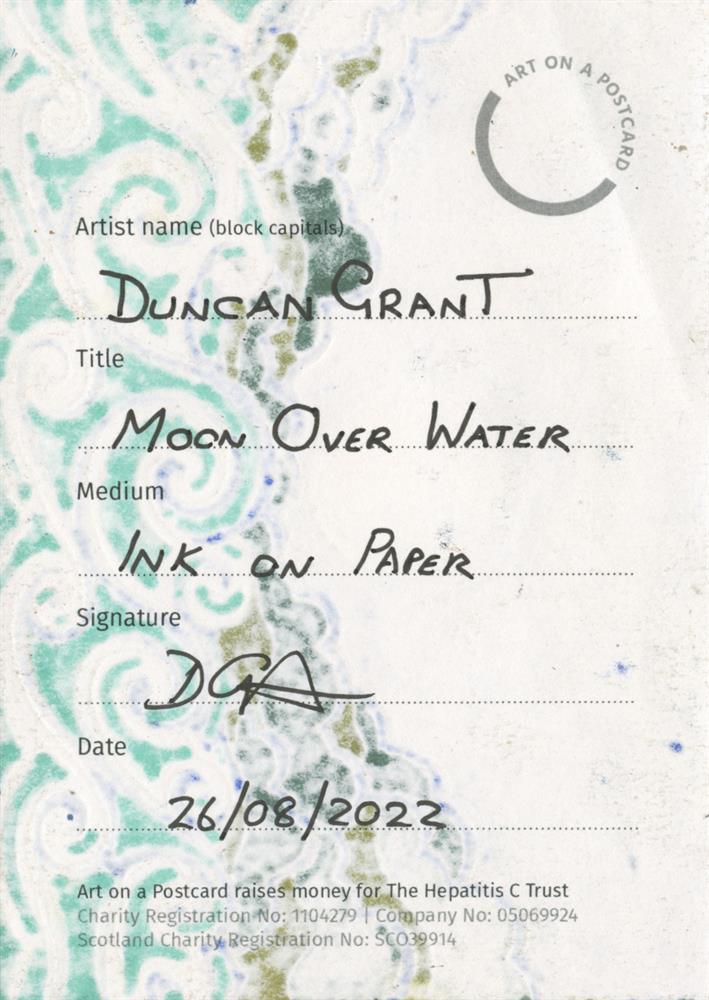 ART ON A POSTCARD
Artist name (block capitals)
DUNCAN GRANT
Title
MOON OVER WATER
Medium
INK ON PAPER
Signature
Date
26/08/2022
Art on a Postcard raises money for The Hepatitis C Trust
Charity Registration No: 1104279 | Company No: 05069924
Scotland Charity Registration No: SCO39914